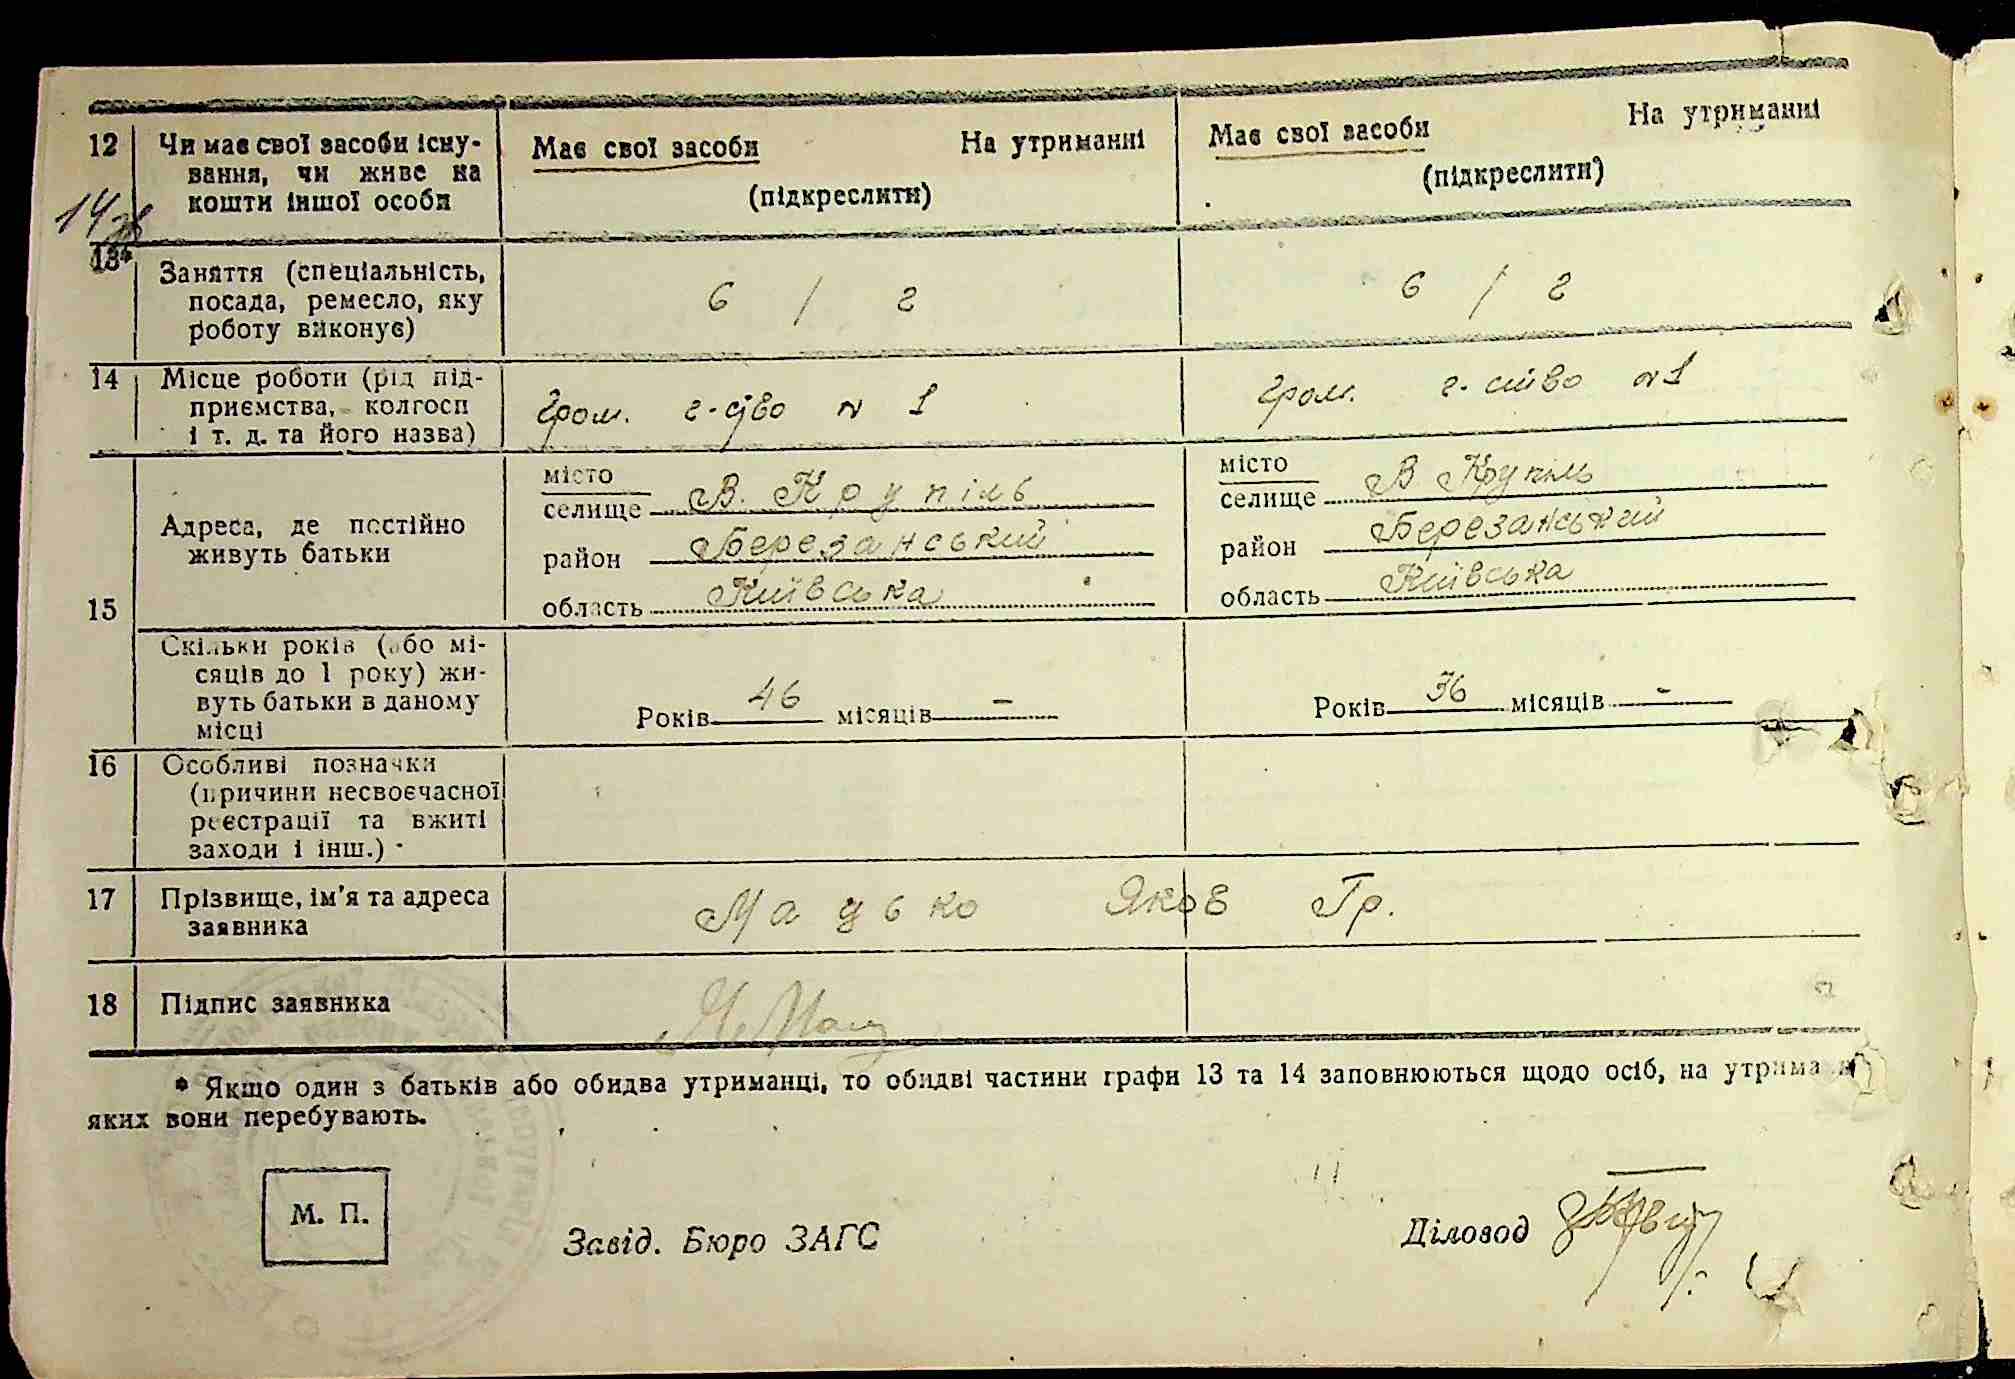 12
Чи має свої засоби існу-
вання, чи живе на
кошти іншої особи
Має свої засоби На утриманні
(підкреслити)
Має свої засоби На утриманні
(підкреслити)
13*
Заняття (спеціальність,
посада, ремесло, яку
роботу виконує)
б / г
б / г
14
Місце роботи (рід під-
приємства, колгосп
і т. д. та його назва)
Гром. г-ство № 1
Гром. г-ство № 1
15
Адреса, де постійно
живуть батьки
місто
селище В. Крупіль
район Березанський
область Київська
місто
селище В Крупіль
район Березанський
область Київська
Скільки років (або мі-
сяців до 1 року) жи-
вуть батьки в даному
місці
Років 46 місяців -
Років 36 місяців -
16
Особливі позначки
(причини несвоєчасної
реєстрації та вжиті
заходи і інш.)
17
Прізвище, ім'я та адреса
заявника
Мацько Яков Гр.
18
Підпис заявника
* Якщо один з батьків або обидва утриманці, то обидві частини графи 13 та 14 заповнюються щодо осіб, на
яких вони перебувають.
М. П.
Завід. Бюро ЗАГС
Діловод